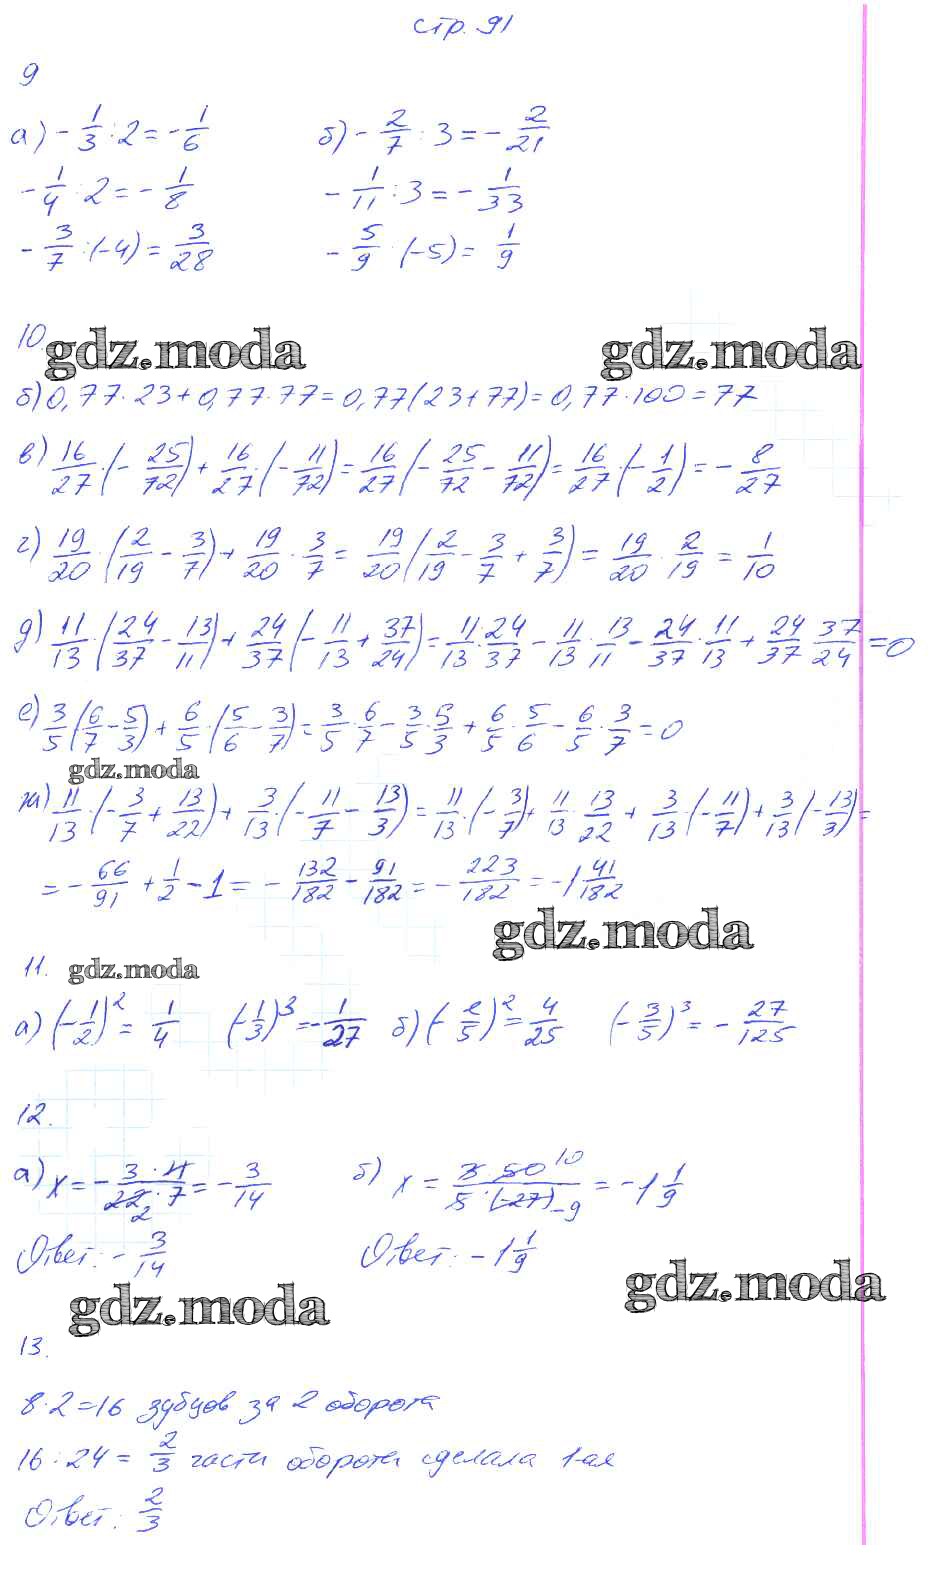 стр. 91
9
а) - 1/3 : 2 = - 1/6 б) - 2/7 : 3 = - 2/21
- 1/4 : 2 = - 1/8 - 1/11 : 3 = - 1/33
- 3/7 : (-4) = 3/28 - 5/9 : (-5) = 1/9
10. gdz.moda gdz.moda
б) 0,77 · 23 + 0,77 · 77 = 0,77 (23 + 77) = 0,77 · 100 = 77
в) 16/27 · (- 25/72) + 16/27 · (- 11/72) = 16/27 (- 25/72 - 11/72) = 16/27 · (- 1/2) = - 8/27
г) 19/20 · (2/19 - 3/7) + 19/20 · 3/7 = 19/20 (2/19 - 3/7 + 3/7) = 19/20 · 2/19 = 1/10
д) 11/13 · (24/37 - 13/11) + 24/37 (- 11/13 + 37/24) = 11/13 · 24/37 - 11/13 · 13/11 - 24/37 · 11/13 + 24/37 · 37/24 = 0
е) 3/5 (6/7 - 5/3) + 6/5 · (5/6 - 3/7) = 3/5 · 6/7 - 3/5 · 5/3 + 6/5 · 5/6 - 6/5 · 3/7 = 0
gdz.moda
ж) 11/13 · (- 3/7 + 13/22) + 3/13 · (- 11/7 - 13/3) = 11/13 · (- 3/7) + 11/13 · 13/22 + 3/13 · (- 11/7) + 3/13 (- 13/3) =
= - 66/91 + 1/2 - 1 = - 132/182 - 91/182 = - 223/182 = -1 41/182
gdz.moda
11. gdz.moda
а) (- 1/2)² = 1/4 (- 1/3)³ = - 1/27 б) (- 2/5)² = 4/25 (- 3/5)³ = - 27/125
12.
а) x = - 3 · 11/22 2 · 7 = - 3/14 б) x = 3 · 50 10/5 · (-27) -9 = -1 1/9
Ответ: - 3/14 Ответ: -1 1/9
gdz.moda gdz.moda
13.
8 · 2 = 16 зубцов за 2 оборота
16 : 24 = 2/3 части оборота сделала 1-ая
Ответ: 2/3